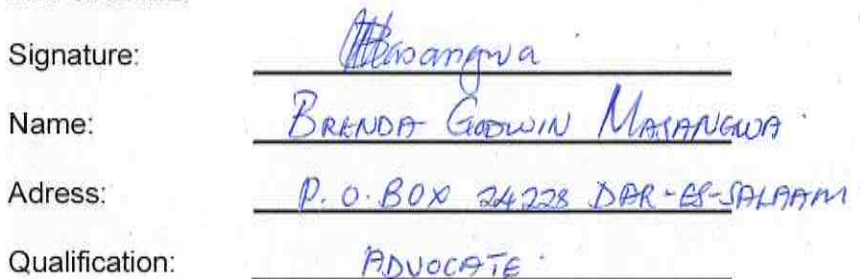 Signature: Masangwa
Name: BRENDA GODWIN MASANGWA
Adress: P. O. BOX 24228 DAR-ES-SALAAM
Qualification: ADVOCATE